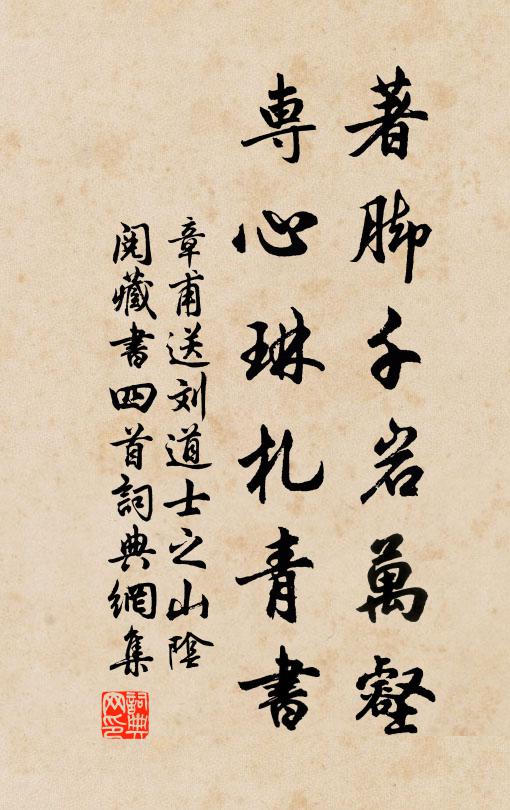 著脚千岩萬壑
専心琳札青書
章甫送刘道士之山陰
閱藏書四首詞典網集
詞典
网印